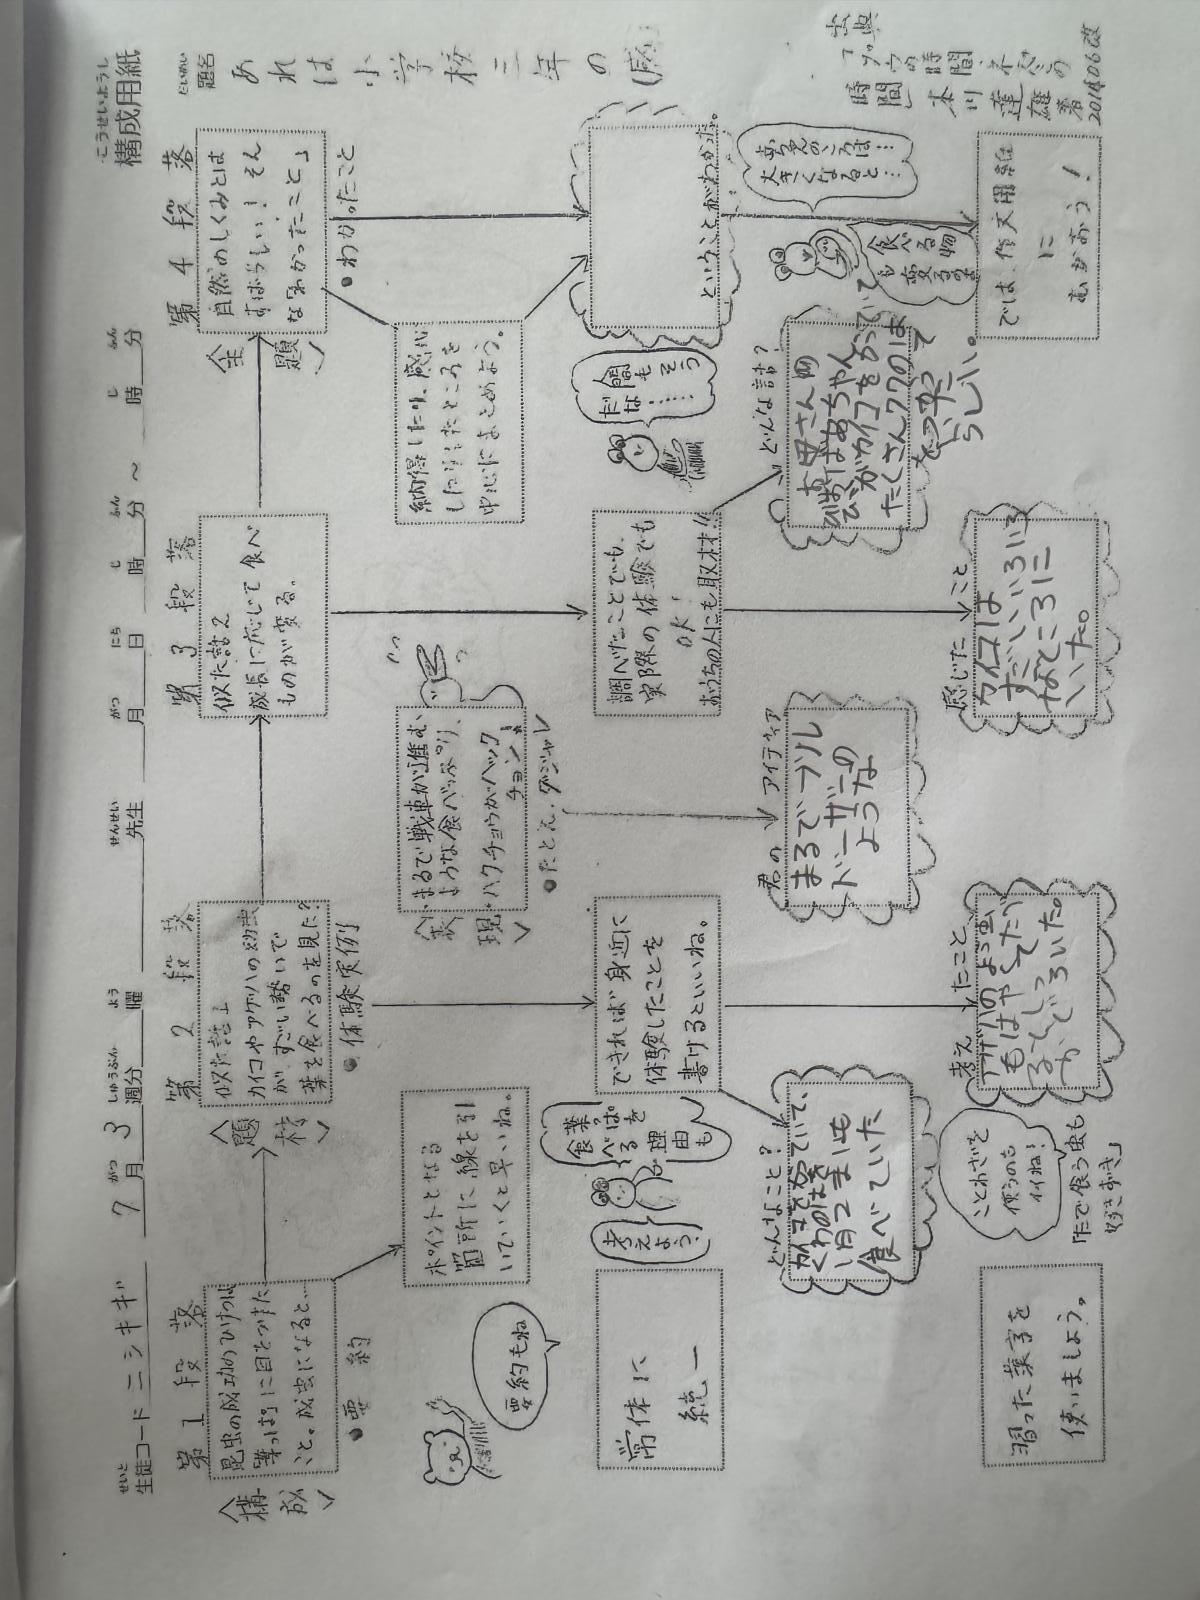 こうせいようし
構成用紙
せいと
生徒コード ニシキギ 7月 3週分 曜 先生 月 日 時 分 ~ 時 分
がつ しゅうぶん よう せんせい がつ にち じ ふん じ ふん
だいめい
題名 あれは小学校三年の
出典
「ゾウの時間 ネズミの
時間」 本川達雄著
201406改
〈構成〉
第1段落
昆虫の成功のひけつは
葉っぱに目をつけた
こと。成虫になると…
●要約
ポイントとなる
箇所に線を引
いていくと早いね。
要約もね
常体に
統一
習った漢字を
使いましょう。
〈題材〉
第2段落
似た話1
カイコやアゲハの幼虫
が、すごい勢いで
葉を食べるのを見た?
●体験実例
できれば身近に
体験したことを
書けるといいね。
葉っぱを
食べる
理由も
考えよう。
どんなこと?
カイコをかっていて、
くわのはを
食べていた
考えたこと
ことわざを
使うのも
イイね!
「たで食う虫も
好き好き」
〈表現〉
・まるで戦車が進む
ような食べっぷり。
・ハクチョウがハック
チョン!
●たとえ、ダジャレ
君のアイディア
まるでブル
ドーザーの
ような
第3段落
似た話2
成長に応じて食べ
ものが変る。
調べたことでも、
実際の体験でも
OK!
おうちの人にも取材!!
どんな話?
お母さんの
おばあちゃん
がカイコをかっていて
たくさんクワのは
をつんだ
らしい。
感じたこと
カイコは
すごいいろいろ
なところに
いた。
〈主題〉
第4段落
自然のしくみとは
すばらしい!そん
な「わかったこと」
●わかったこと
納得したり、感心
したりしたところを
中心にまとめよう。
人間もそう
だな……
ということがわかった。
幼虫のころは…
大きくなると…
食べる物
も変るのね
では、作文用紙
に
むかおう!